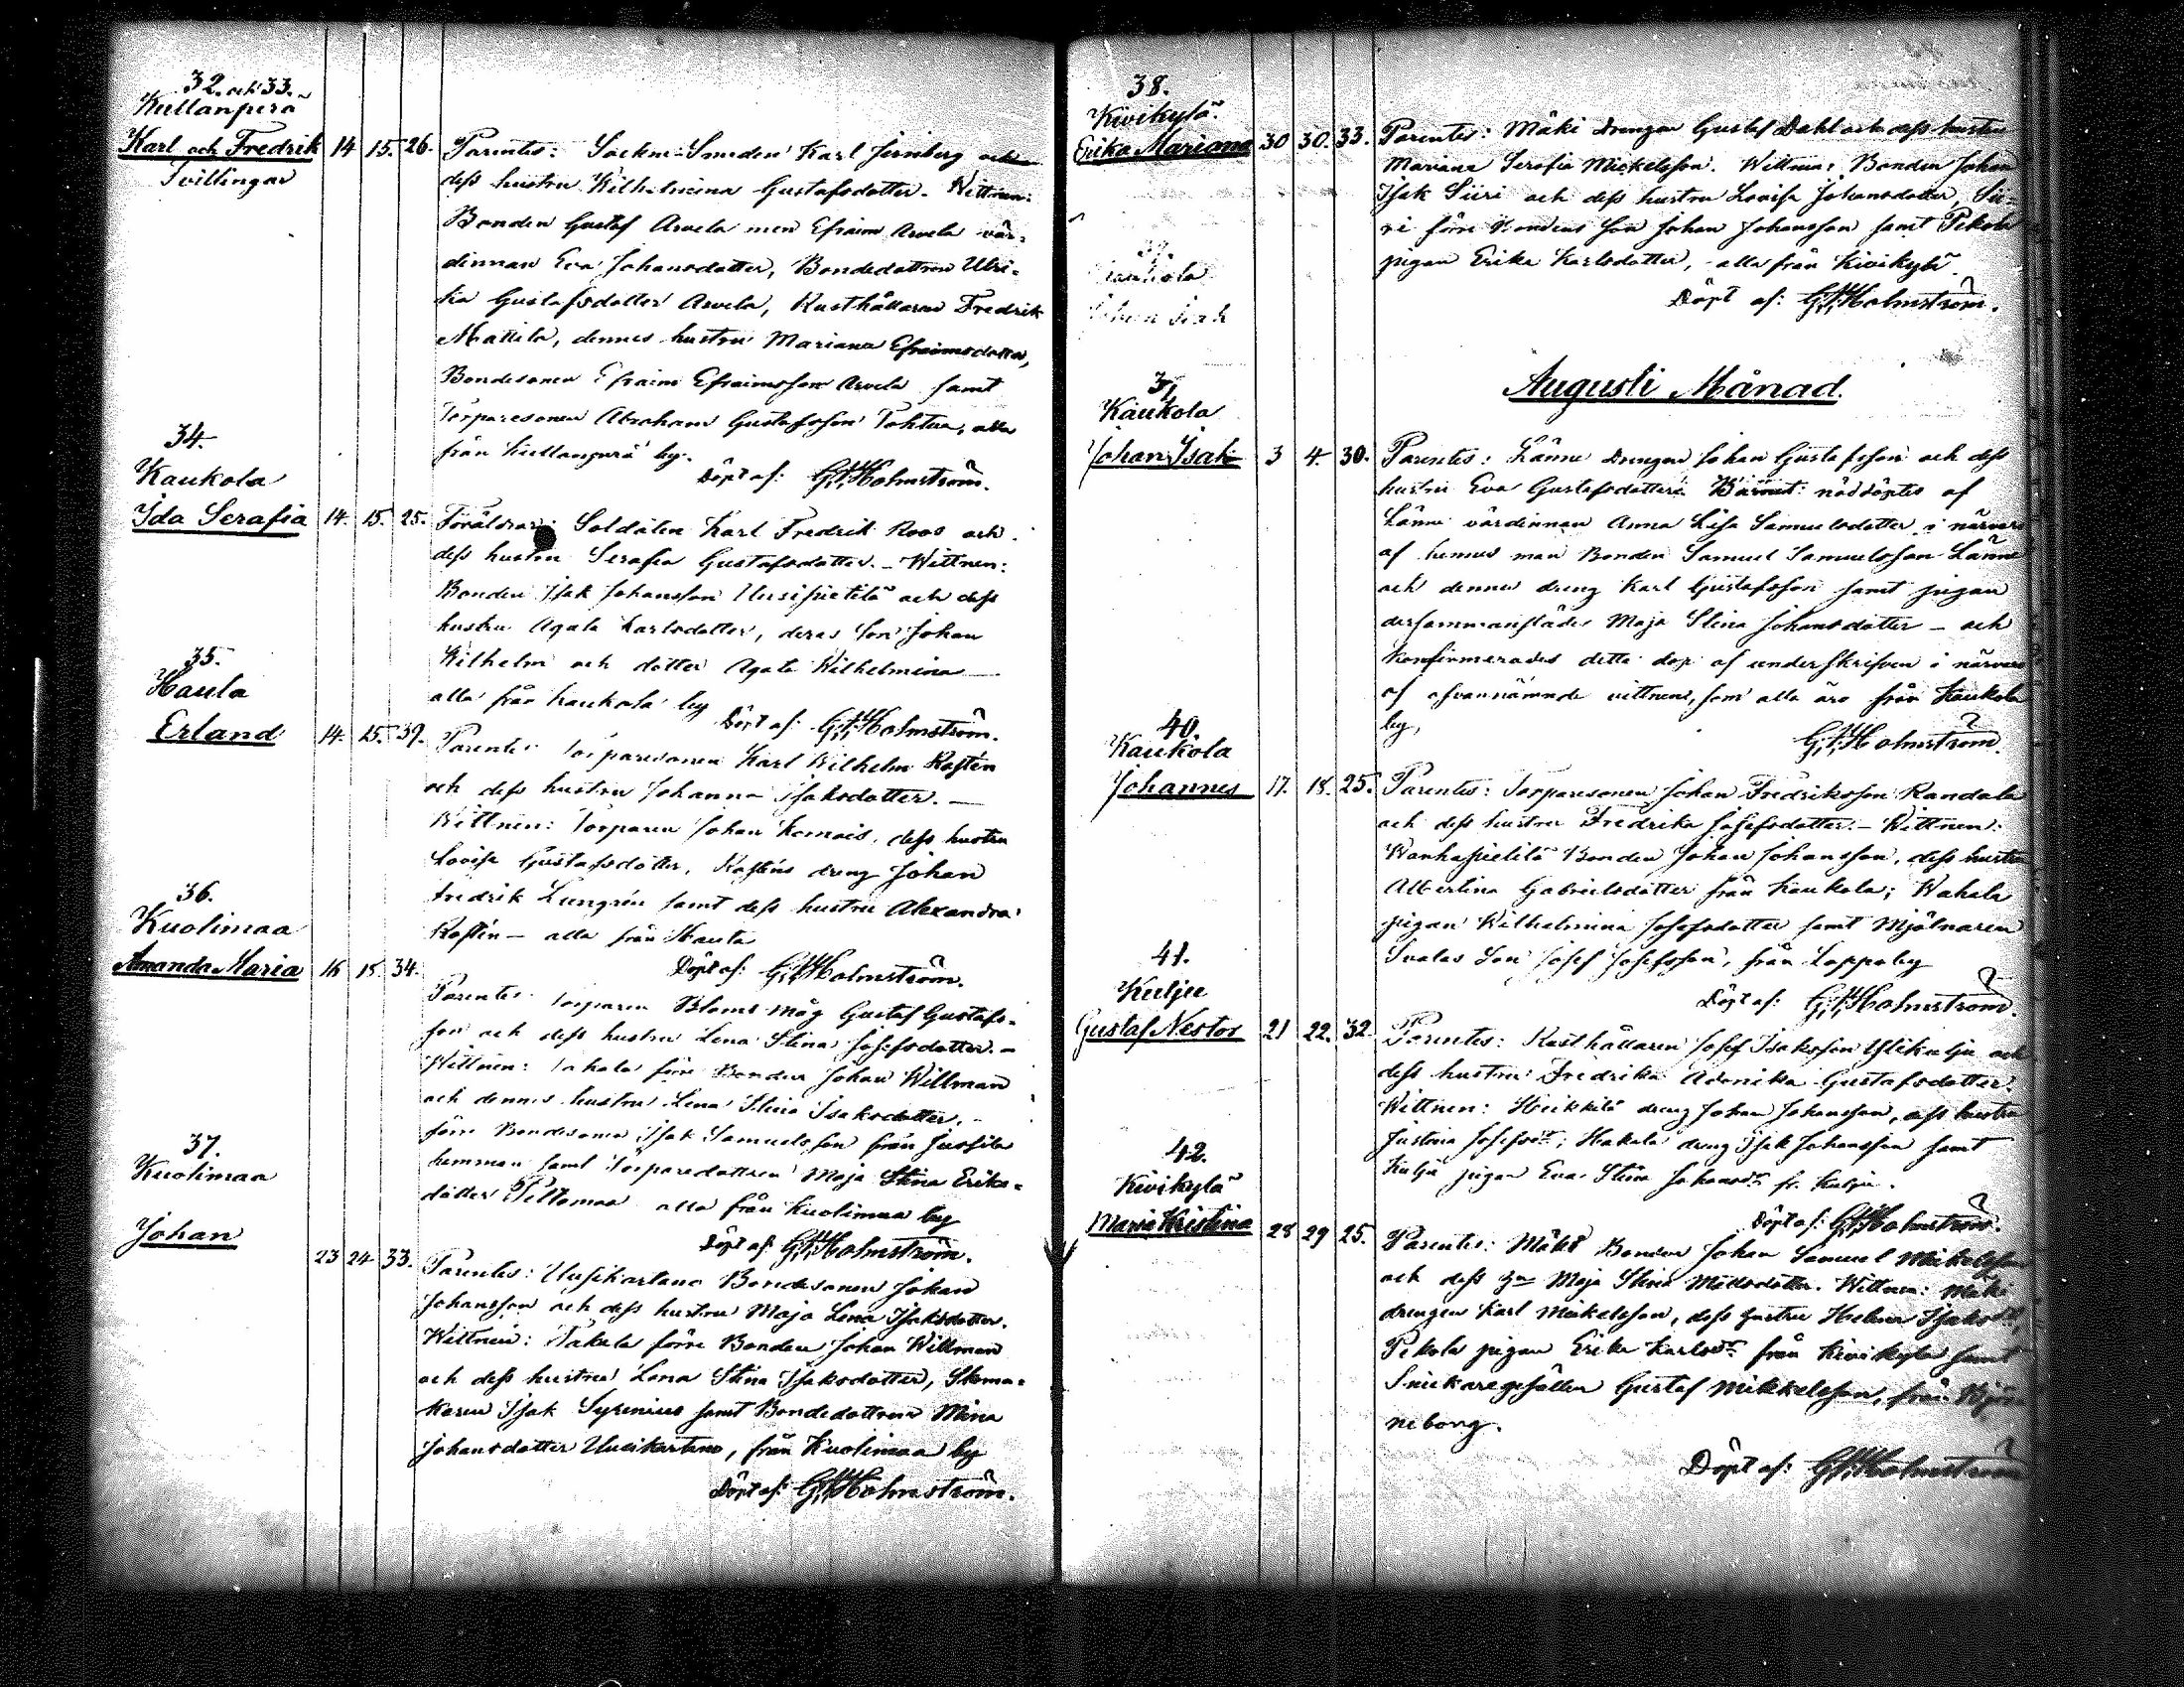 32. och 33.
Kullanperä
Karl och Fredrik 14 15. 26.
Tvillingar
Parentes: Sockne-Smeden Karl Jernberg och
dess hustru Wilhelmina Gustafsdotter. Wittnen:
Bonden Gustaf Arvela men Efraim Arvela vär-
dinnan Eva Johansdotter, Bondedottren Ulri-
ka Gustafsdotter Arvela, Rusthållaren Fredrik
Mattila, dennes hustru Mariana Efraimsdotter,
Bondesonen Efraim Efraimsson Arvela samt
Torparesonen Abraham Gustafsson Tohtua, alla
från Kullanperä by.
Döpt af: G. H. Holmström.
34.
Kaukola
Ida Serafia 14. 15. 25.
Föräldrar: Soldaten Karl Fredrik Roos och
dess hustru Serafia Gustafsdotter. - Wittnen:
Bonden Isak Johansson Uusipietilä och dess
hustru Agata Karlsdotter, deras Son Johan
Wilhelm och dotter Agata Wilhelmina —
alla från Kaukola by
Döpt af: G. H. Holmström.
35.
Haula
Erland 14. 15. 39.
Parentes: Torparesonen Karl Wilhelm Rostén
och dess hustru Johanna Isaksdotter. —
Wittnen: Torparen Johan dess hustru
Lovisa Gustafsdotter, Rosténs dreng Johan
Fredrik Lungrén samt dess hustru Alexandra
Rostén — alla från Haula
Döpt af: G. H. Holmström.
36.
Kuolimaa
Amanda Maria 16 18. 34.
Parentes: Torparen Bloms måg Gustaf Gustafs-
son och dess hustru Lena Stina Josefsdotter. -
Wittnen: Takala förre Bonden Johan Willman
och dennes hustru Lena Stina Isaksdotter,
förre Bondesonen Isak Samuelsson från Jussila
hemman samt Torparedottren Maja Stina Eriks-
dotter Peltomaa alla från Kuolimaa by
Döpt af: G. H. Holmström.
37.
Kuolimaa
Johan
23 24 33.
Parentes: Uusikartano Bondesonen Johan
Johansson och dess hustru Maja Lena Isaksdotter.
Wittnen: Takala förre Bonden Johan Willman
och dess hustru Lena Stina Isaksdotter, Skoma-
karen Isak Syrenius samt Bondedottren Mina
Johansdotter Uusikartano, från Kuolimaa by
Döpt af: G. H. Holmström.
38.
Kivikylä
Erika Mariana 30 30. 33.
Parentes: Mäki Drengen Gustaf Dahl och dess hustru
Mariana Serafia Mickelsson. Wittnen: Bonden Johan
Isak Siiri och dess hustru Lovisa Johansdotter, Sii-
ri förre Bondens Son Johan Johansson samt Pekola
pigan Erika Karlsdotter, alla från Kivikylä
Döpt af: G. H. Holmström.
Augusti Månad.
Kaukola
Johan Isak 3 4. 30.
Parentes: Länne Drengen Johan Gustafsson och dess
hustru Eva Gustafsdotter. Barnet nöddöptes af
Länne värdinnan Anna Lisa Samuelsdotter i närvaro
af hennes man Bonden Samuel Samuelsson Länne
och dennes dreng Karl Gustafsson samt pigan
dersammanstädes Maja Stina Johansdotter - och
konfirmerades detta dop af underskrifven i närvaro
af ofvannämnde vittnen, som alla äro från Kaukola
by,
G. H. Holmström.
40.
Kaukola
Johannes 17. 18. 25.
Parentes: Torparesonen Johan Fredriksson Randala
och dess hustru Fredrika Josefsdotter. - Wittnen:
Wanhapietilä Bonden Johan Johansson, dess hustru
Albertina Gabrielsdotter från Kaukola; Wahala
pigan Wilhelmina Josefsdotter samt Mjölnaren
Svalas Son Josef Josefsson, från Loppoby
Döpt af: G. H. Holmström.
41.
Kulju
Gustaf Nestor 21 22. 32.
Parentes: Rusthållaren Josef Isaksson Ylikulju och
dess hustru Fredrika Gustafsdotter.
Wittnen: Heikkilä dreng Johan Johansson, dess hustru
Justina Josefsdr; Hakala dreng Isak Johansson samt
Kulju pigan Eva Stina Johansdr fr. Kulju.
Döpt af: G. H. Holmström.
42.
Kivikylä
Maria Kristina 28 29 25.
Parentes: Mäki Bonden Johan Samuel Mickelsson
och dess Maja Stina Matsdotter. Wittnen: Mäki
drengen Karl Mickelsson, dess hustru Helena Isaksdr,
Pekola pigan Erika Karlsdr från Kivikylä samt
Snickaregesällen Gustaf Mikkelsson, från Björ-
neborg.
Döpt af: G. H. Holmström